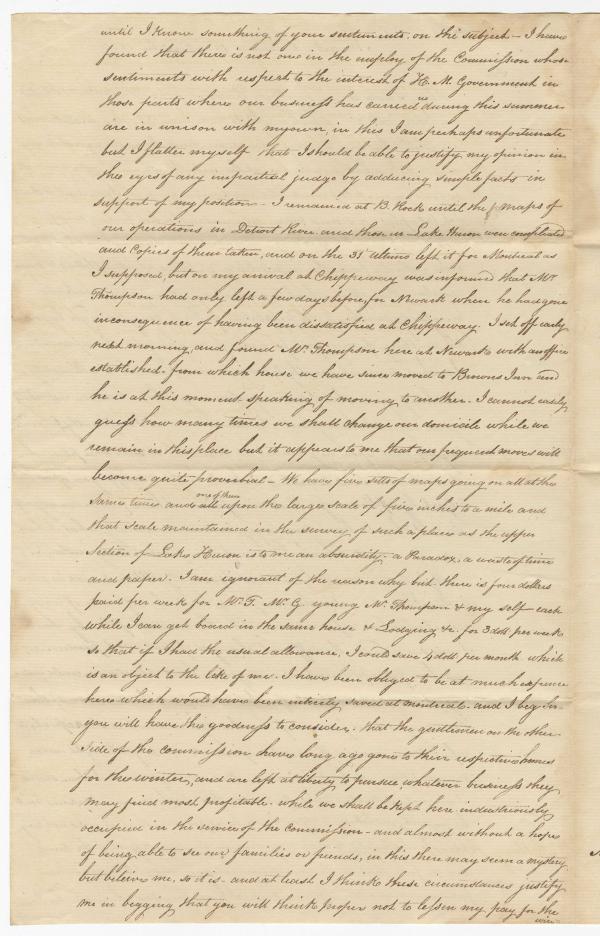 until I know something of your sentiments on this subject – I have
found that there is not one in the employ of the Commission whose
sentiments with respect to the interest of H. M. Government in
those parts where our business has carried us during this summer
are in unison with my own, in this I am perhaps unfortunate
but I flatter myself that I should be able to justify my opinion in
the eyes of any impartial judge by adducing simple facts in
support of my position – I remained at B. Rock until the maps of
our operations in Detroit River and those in Lake Huron were completed
and Copies of them taken, and on the 31st ultimo left it for Montreal as
I supposed, but on my arrival at Chippeway was informed that Mr
Thompson had only left a few days before for Newark where he had gone
in consequence of having been dissatisfied at Chippeway. I set off early
next morning, and found Mr. Thompson here at Newark with an office
established – from which house we have since moved to Browns Inn and
he is at this moment speaking of moving to another. I cannot easily
guess how many times we shall change our domicile while we
remain in this place but it appears to me that our frequent moves will
become quite proverbial – We have five setts of maps going on all at the
same time and one of them upon the large scale of five inches to a mile and
that scale maintained in the survey of such a place as the upper
Section of Lake Huron is to me an absurdity – a Paradox, a waste of time
and paper. I am ignorant of the reason why but there is four dollars
paid per week for Mr. T. Mr. G. young Mr. Thompson & my self each
while I can get board in the same house & Lodging &c. for 3 doll. per week
so that if I had the usual allowance, I could save 4 doll. per month which
is an object to the like of me. I have been obliged to be at much expence
here which would have been intirely saved at Montreal – and I beg Sir
you will have the goodness to consider, that the gentlemen on the other
side of the commission have long ago gone to their respective homes
for the winter, and are left at liberty to pursue whatever business they
may find most profitable – while we shall be kept here industriously
occupied in the service of the commission – and almost without a hope
of being able to see our families or friends, in this there may seem a mystery
but believe me, so it is – and at least I think these circumstances justify
me in begging that you will think proper not to lessen my pay for the
win-